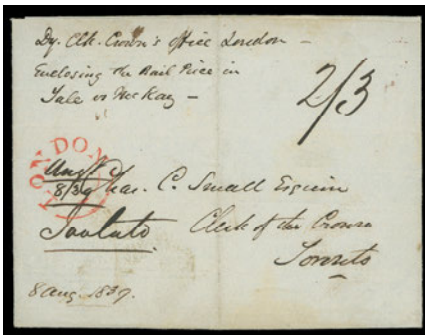 Dy. Clk. Crown's Office London –
Enclosing the Bail Piece in
Yale vs McKay –
2/3
LONDON
Augt
8/39 Chas. C. Small Esquire
Clerk of the Crown
Toronto
8 Aug. 1839.